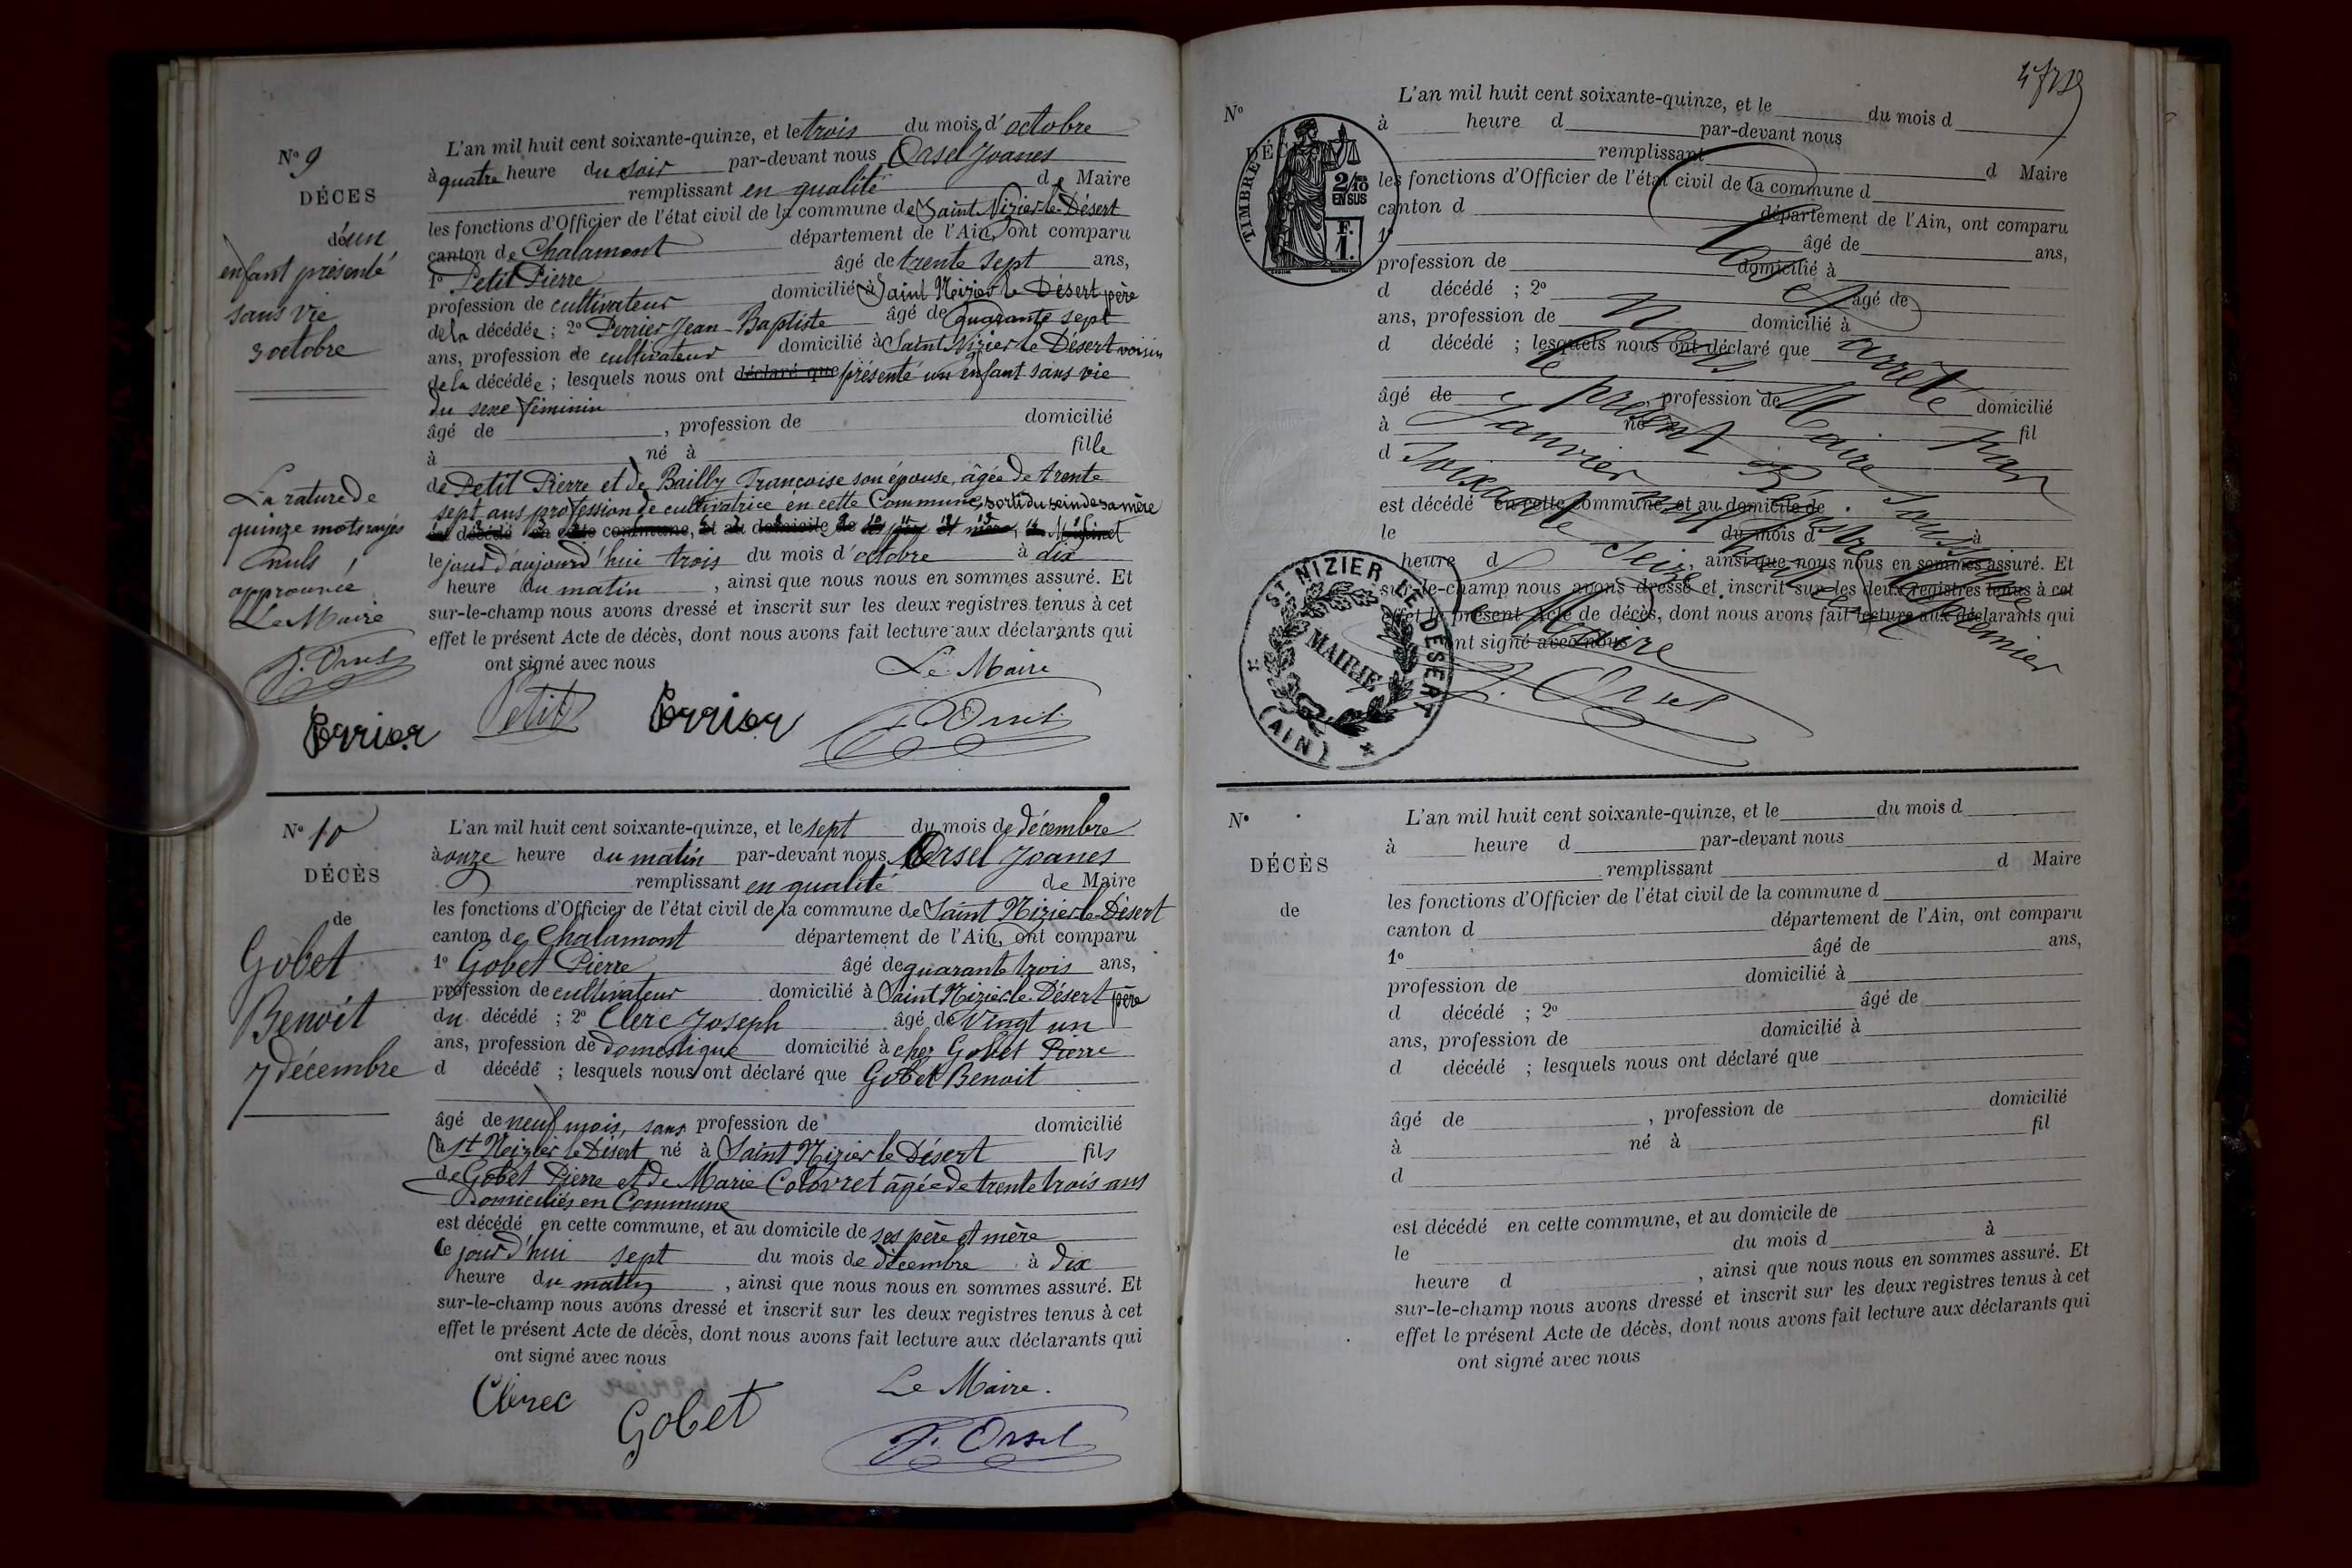 N° 9
DÉCES
d'un
enfant présenté
sans vie
3 octobre
L'an mil huit cent soixante-quinze, et le trois du mois d'octobre
à quatre heure du soir par-devant nous Orsel Joanes
remplissant en qualité de Maire
les fonctions d'Officier de l'état civil de la commune de Saint Nizier le Désert
canton de Chalamont département de l'Ain, ont comparu
1° Petit Pierre âgé de trente sept ans,
profession de cultivateur domicilié à Saint Nizier le Désert père
de la décédée ; 2° Perrier Jean-Baptiste âgé de quarante sept
ans, profession de cultivateur domicilié à Saint Nizier le Désert voisin
de la décédée ; lesquels nous ont déclaré que présenté un enfant sans vie
du sexe féminin
âgé de , profession de domicilié
à né à fille
de Petit Pierre et de Bailly Françoise son épouse, âgée de trente
sept ans profession de cultivatrice en cette Commune, sorti du sein de sa mère
est décédé en cette commune, et au domicile de ses père et mère,
le jour d'aujourd'hui trois du mois d'octobre à dix
heure du matin , ainsi que nous nous en sommes assuré. Et
sur-le-champ nous avons dressé et inscrit sur les deux registres tenus à cet
effet le présent Acte de décès, dont nous avons fait lecture aux déclarants qui
ont signé avec nous
La rature de
quinze mots rayés
nuls
approuvée
Le Maire
J. Orsel
Perrier
Petit
Perrier
Le Maire
J. Orsel
N° 10
DÉCÈS
de
Gobet
Benoit
7 décembre
L'an mil huit cent soixante-quinze, et le sept du mois de décembre
à onze heure du matin par-devant nous Orsel Joanes
remplissant en qualité de Maire
les fonctions d'Officier de l'état civil de la commune de Saint Nizier le Désert
canton de Chalamont département de l'Ain, ont comparu
1° Gobet Pierre âgé de quarante trois ans,
profession de cultivateur domicilié à Saint Nizier le Désert père
du décédé ; 2° Clerc Joseph âgé de Vingt un
ans, profession de domestique domicilié à chez Gobet Pierre
d décédé ; lesquels nous ont déclaré que Gobet Benoit
âgé de neuf mois, sans profession de domicilié
à St Nizier le Désert né à Saint Nizier le Désert fils
de Gobet Pierre et de Marie Colovret âgée de trente trois ans
Domiciliés en Commune
est décédé en cette commune, et au domicile de ses père et mère
le jour d'hui sept du mois de décembre à dix
heure du matin , ainsi que nous nous en sommes assuré. Et
sur-le-champ nous avons dressé et inscrit sur les deux registres tenus à cet
effet le présent Acte de décès, dont nous avons fait lecture aux déclarants qui
ont signé avec nous
Clerec
Gobet
Le Maire.
J. Orsel
N°
TIMBRE
2/10
EN SUS
F.
1.
L'an mil huit cent soixante-quinze, et le du mois d
à heure d par-devant nous
remplissant d Maire
les fonctions d'Officier de l'état civil de la commune d
canton d département de l'Ain, ont comparu
1° âgé de ans,
profession de domicilié à
d décédé ; 2° âgé de
ans, profession de domicilié à
d décédé ; lesquels nous ont déclaré que
âgé de profession de domicilié
à né fil
d
est décédé en cette commune, et au domicile de
le du mois d à
heure d , ainsi que nous nous en sommes assuré. Et
sur-le-champ nous avons dressé et inscrit sur les deux registres tenus à cet
effet le présent Acte de décès, dont nous avons fait lecture aux déclarants qui
ont signé avec nous
Clos et arrêté
le présent Régistre
par Nous Maire soussigné
Janvier mil huit
soixante seize
Le Maire
J. Orsel
ST NIZIER LE DÉSERT
MAIRIE
(AIN)
N°
DÉCÈS
de
L'an mil huit cent soixante-quinze, et le du mois d
à heure d par-devant nous
remplissant d Maire
les fonctions d'Officier de l'état civil de la commune d
canton d département de l'Ain, ont comparu
1° âgé de ans,
profession de domicilié à
d décédé ; 2° âgé de
ans, profession de domicilié à
d décédé ; lesquels nous ont déclaré que
âgé de , profession de domicilié
à né à fil
d
est décédé en cette commune, et au domicile de
le du mois d à
heure d , ainsi que nous nous en sommes assuré. Et
sur-le-champ nous avons dressé et inscrit sur les deux registres tenus à cet
effet le présent Acte de décès, dont nous avons fait lecture aux déclarants qui
ont signé avec nous